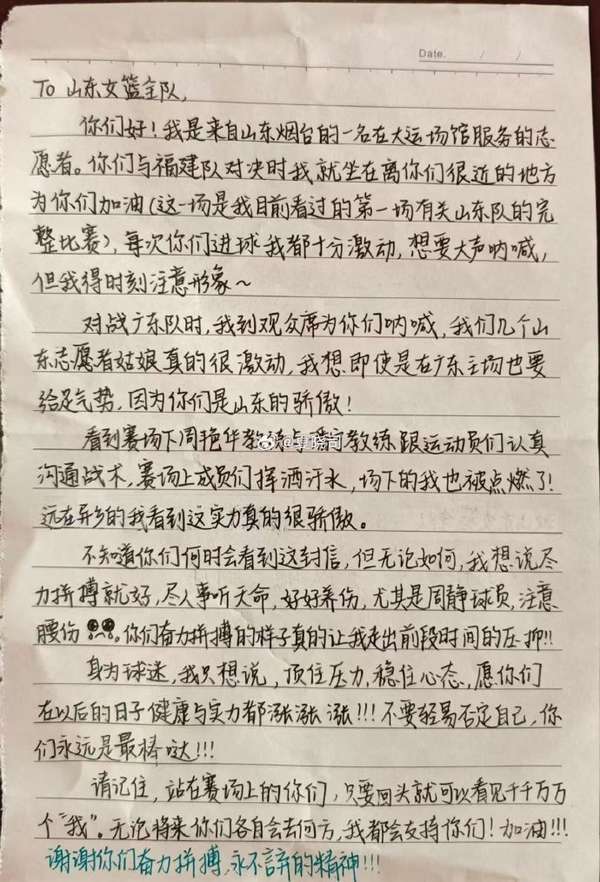 Date. / /
To 山东女篮全队,
你们好!我是来自山东烟台的一名在大运场馆服务的志
愿者。你们与福建队对决时我就坐在离你们很近的地方
为你们加油(这一场是我目前看过的第一场有关山东队的完
整比赛),每次你们进球我都十分激动,想要大声呐喊,
但我得时刻注意形象~
对战广东队时,我到观众席为你们呐喊,我们几个山
东志愿者姑娘真的很激动,我想即使是在广东主场也要
给足气势,因为你们是山东的骄傲!
看到赛场下周艳华教练与 教练跟运动员们认真
沟通战术,赛场上成员们挥洒汗水,场下的我也被点燃了!
远在异乡的我看到这实力真的很骄傲。
不知道你们何时会看到这封信,但无论如何,我想说尽
力拼搏就好,尽人事听天命,好好养伤,尤其是周静球员,注意
腰伤 。你们奋力拼搏的样子真的让我走出前段时间的压抑!!
身为球迷,我只想说,顶住压力,稳住心态,愿你们
在以后的日子健康与实力都涨涨涨!!!不要轻易否定自己,你
们永远是最棒哒!!!
请记住,站在赛场上的你们,只要回头就可以看见千千万万
个“我”。无论将来你们各自会去何方,我都会支持你们!加油!!!
谢谢你们奋力拼搏,永不言弃的精神!!!